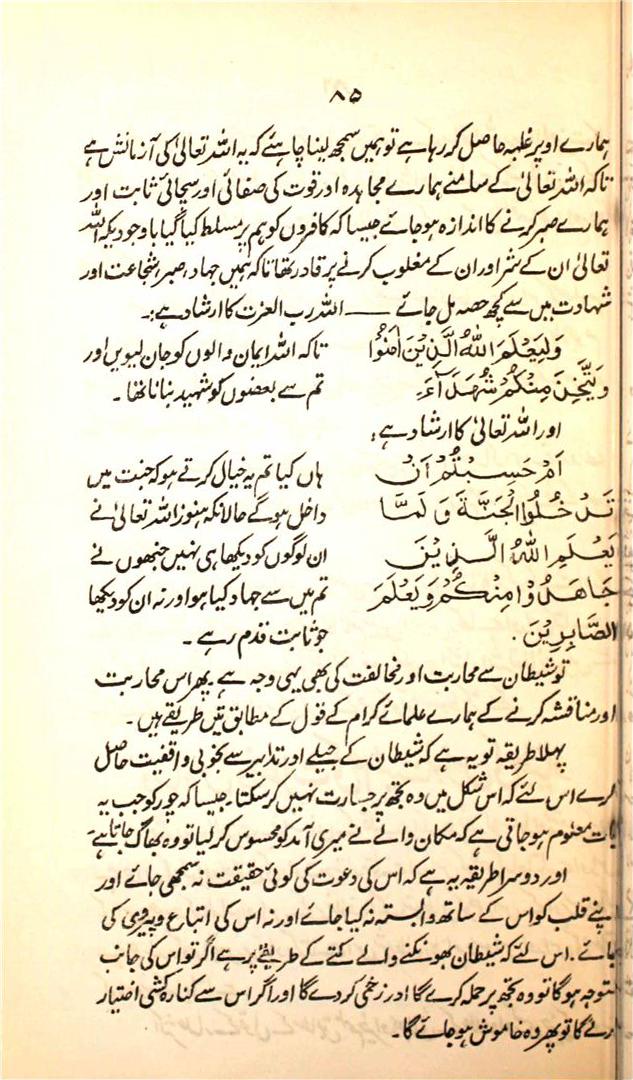 ۸۵
ہمارے اوپر غلبہ حاصل کر رہا ہے تو ہمیں سمجھ لینا چاہئے کہ یہ اللہ تعالیٰ کی آزمائش ہے
تاکہ اللہ تعالیٰ کے سامنے ہمارے مجاہدہ اور قوت کی صفائی اور سچائی ثابت اور
ہمارے صبر کرنے کا اندازہ ہو جائے جیسا کہ کافروں کو ہم پر مسلط کیا گیا باوجودیکہ اللہ
تعالیٰ ان کے شر اور ان کے مغلوب کرنے پر قادر تھا تاکہ ہمیں جہاد، صبر، شجاعت اور
شہادت میں سے کچھ حصہ مل جائے —— اللہ رب العزت کا ارشاد ہے:۔
وَلِيَعْلَمَ اللّٰهُ الَّذِيْنَ اٰمَنُوْا تاکہ اللہ ایمان والوں کو جان لیویں اور
وَيَتَّخِذَ مِنْكُمْ شُهَدَآءَ۔ تم سے بعضوں کو شہید بنانا تھا۔
اور اللہ تعالیٰ کا ارشاد ہے:
اَمْ حَسِبْتُمْ اَنْ ہاں کیا تم یہ خیال کرتے ہو کہ جنت میں
تَدْخُلُوا الْجَنَّةَ وَلَمَّا داخل ہو گے حالانکہ ہنوز اللہ تعالیٰ نے
يَعْلَمِ اللّٰهُ الَّذِيْنَ ان لوگوں کو دیکھا ہی نہیں جنھوں نے
جَاهَدُوْا مِنْكُمْ وَيَعْلَمَ تم میں سے جہاد کیا ہو اور نہ ان کو دیکھا
الصَّابِرِيْنَ۔ جو ثابت قدم رہے۔
تو شیطان سے محاربت اور مخالفت کی بھی یہی وجہ ہے پھر اس محاربت
اور مناقشہ کرنے کے ہمارے علمائے کرام کے قول کے مطابق تین طریقے ہیں۔
پہلا طریقہ تو یہ ہے کہ شیطان کے حیلے اور تدابیر سے بخوبی واقفیت حاصل
کرے اس لئے کہ اس شکل میں وہ تجھ پر جسارت نہیں کر سکتا۔ جیسا کہ چور کو جب یہ
بات معلوم ہو جاتی ہے کہ مکان والے نے میری آمد کو محسوس کر لیا تو وہ بھاگ جاتا ہے۔
اور دوسرا طریقہ یہ ہے کہ اس کی دعوت کی کوئی حقیقت نہ سمجھی جائے اور
اپنے قلب کو اس کے ساتھ وابستہ نہ کیا جائے اور نہ اس کی اتباع و پیروی کی
جائے۔ اس لئے کہ شیطان بھونکنے والے کتے کے طریقے پر ہے اگر تو اس کی جانب
متوجہ ہو گا تو وہ تجھ پر حملہ کرے گا اور زخمی کر دے گا اور اگر اس سے کنارہ کشی اختیار
کرلے گا تو پھر وہ خاموش ہو جائے گا۔